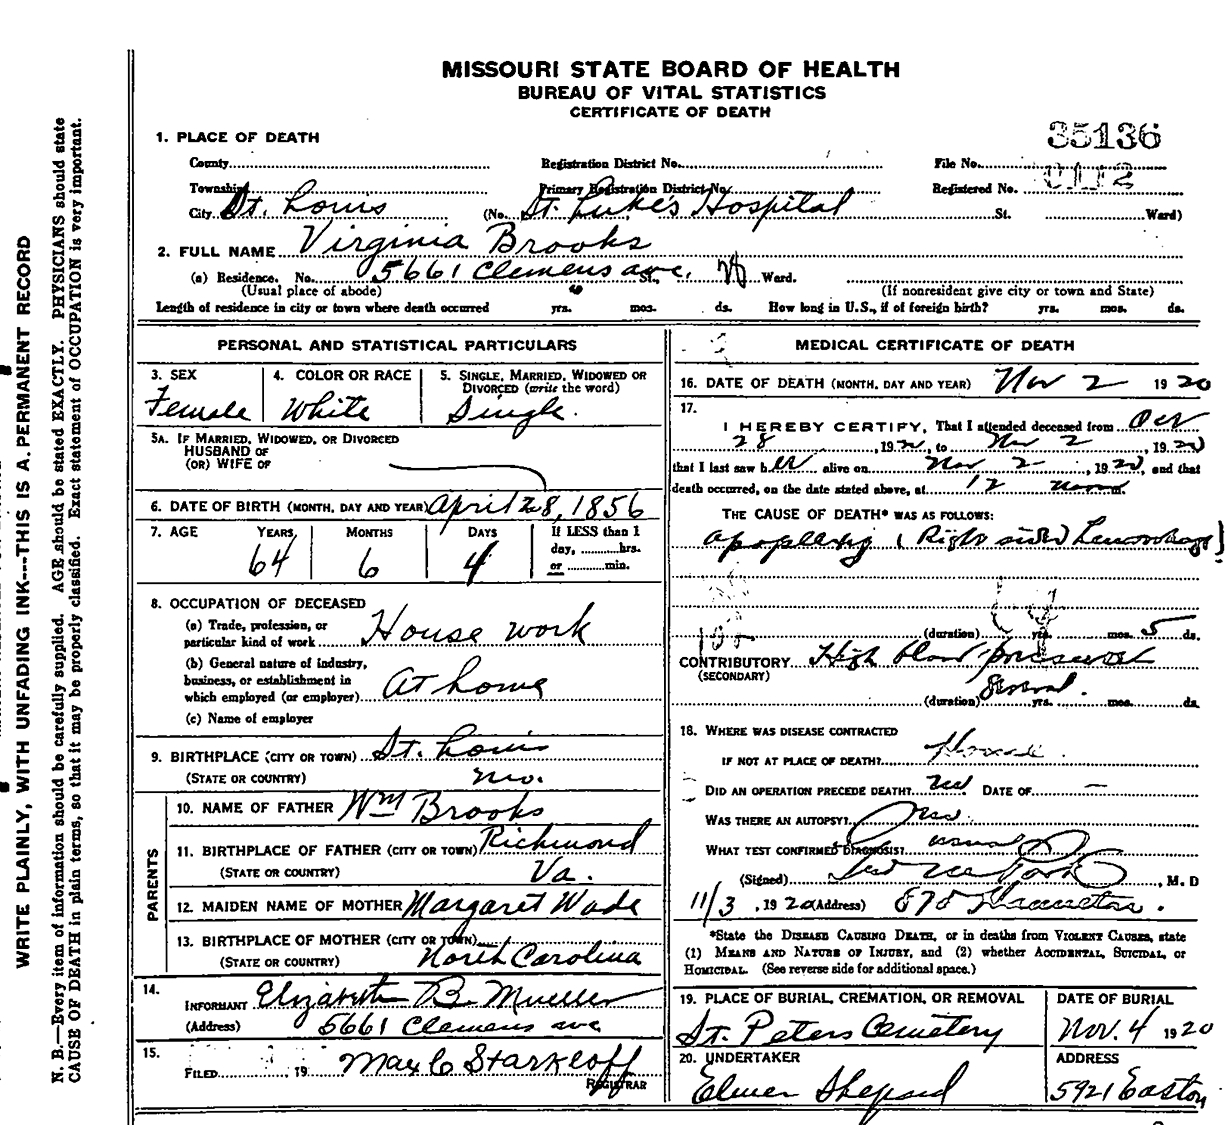 MISSOURI STATE BOARD OF HEALTH
BUREAU OF VITAL STATISTICS
CERTIFICATE OF DEATH
35136
1. PLACE OF DEATH
County Registration District No. File No.
Township Primary Registration District No. Registered No.
City St. Louis (No. St. Luke's Hospital St. Ward)
2. FULL NAME Virginia Brooks
(a) Residence. No. 5661 Clemens ave. St., Ward.
(Usual place of abode) (If nonresident give city or town and State)
Length of residence in city or town where death occurred yrs. mos. ds. How long in U.S., if of foreign birth? yrs. mos. ds.
PERSONAL AND STATISTICAL PARTICULARS
3. SEX 4. COLOR OR RACE 5. SINGLE, MARRIED, WIDOWED OR
DIVORCED (write the word)
Female White Single.
5A. IF MARRIED, WIDOWED, OR DIVORCED
HUSBAND OF
(OR) WIFE OF
6. DATE OF BIRTH (MONTH, DAY AND YEAR) April 28, 1856
7. AGE YEARS MONTHS DAYS If LESS than 1
day, ........hrs.
or ........min.
64 6 4
8. OCCUPATION OF DECEASED
(a) Trade, profession, or
particular kind of work House work
(b) General nature of industry,
business, or establishment in
which employed (or employer) At home
(c) Name of employer
9. BIRTHPLACE (CITY OR TOWN) St. Louis
(STATE OR COUNTRY) Mo.
PARENTS
10. NAME OF FATHER Wm Brooks
11. BIRTHPLACE OF FATHER (CITY OR TOWN) Richmond
(STATE OR COUNTRY) Va.
12. MAIDEN NAME OF MOTHER Margaret Wade
13. BIRTHPLACE OF MOTHER (CITY OR TOWN)
(STATE OR COUNTRY) North Carolina
14.
INFORMANT Elizabeth B. Mueller
(Address) 5661 Clemens ave
15.
FILED , 19 Max C Starkloff
REGISTRAR
MEDICAL CERTIFICATE OF DEATH
16. DATE OF DEATH (MONTH, DAY AND YEAR) Nov 2 1920
17.
I HEREBY CERTIFY, That I attended deceased from Oct
28, 1920, to Nov 2, 1920
that I last saw her alive on Nov 2, 1920, and that
death occurred, on the date stated above, at 12 noon m.
THE CAUSE OF DEATH* WAS AS FOLLOWS:
Apoplexy (Right sided hemorrhage)
(duration) yrs. mos. 5 ds.
CONTRIBUTORY High blood pressure
(SECONDARY)
(duration) several yrs. mos. ds.
18. WHERE WAS DISEASE CONTRACTED
IF NOT AT PLACE OF DEATH? Home
DID AN OPERATION PRECEDE DEATH? no DATE OF –
WAS THERE AN AUTOPSY? no
WHAT TEST CONFIRMED DIAGNOSIS? usual
(Signed) , M. D
11/3, 1920 (Address)
*State the DISEASE CAUSING DEATH, or in deaths from VIOLENT CAUSES, state
(1) MEANS AND NATURE OF INJURY, and (2) whether ACCIDENTAL, SUICIDAL, or
HOMICIDAL. (See reverse side for additional space.)
19. PLACE OF BURIAL, CREMATION, OR REMOVAL DATE OF BURIAL
St. Peters Cemetery Nov. 4 1920
20. UNDERTAKER ADDRESS
Elmer Shepard 5921 Easton
WRITE PLAINLY, WITH UNFADING INK---THIS IS A PERMANENT RECORD
N. B.—Every item of information should be carefully supplied. AGE should be stated EXACTLY. PHYSICIANS should state
CAUSE OF DEATH in plain terms, so that it may be properly classified. Exact statement of OCCUPATION is very important.